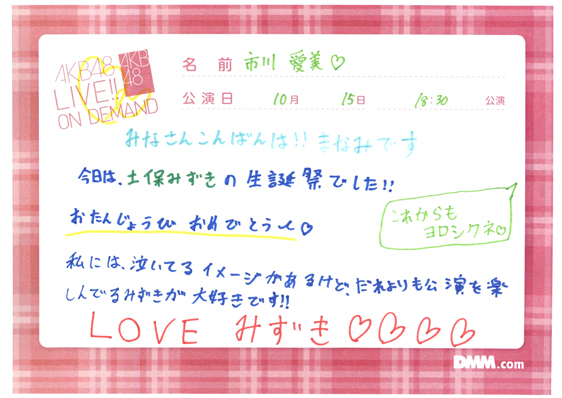 AKB48
LIVE!!
ON DEMAND
AKB
48
名 前 市川 愛美♡
公演日 10月 15日 18:30 公演
みなさんこんばんは!! まなみです
今日は、土保みずきの生誕祭でした!!
おたんじょうび おめでとう〜♡
これからも
ヨロシクネ♡
私には、泣いてるイメージがあるけど、だれよりも公演を楽
しんでるみずきが大好きです!!
LOVE みずき♡♡♡♡
DMM.com